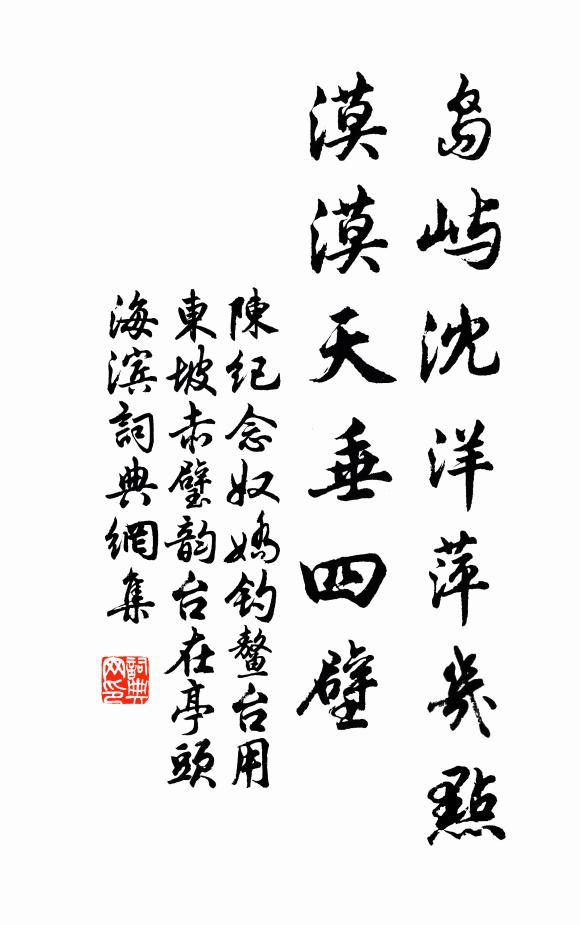 島嶼沈洋萍幾點
漠漠天垂四壁
陳紀念奴嬌釣鳌台用
東坡赤壁韵台在亭頭
海滨詞典網集
詞典网印